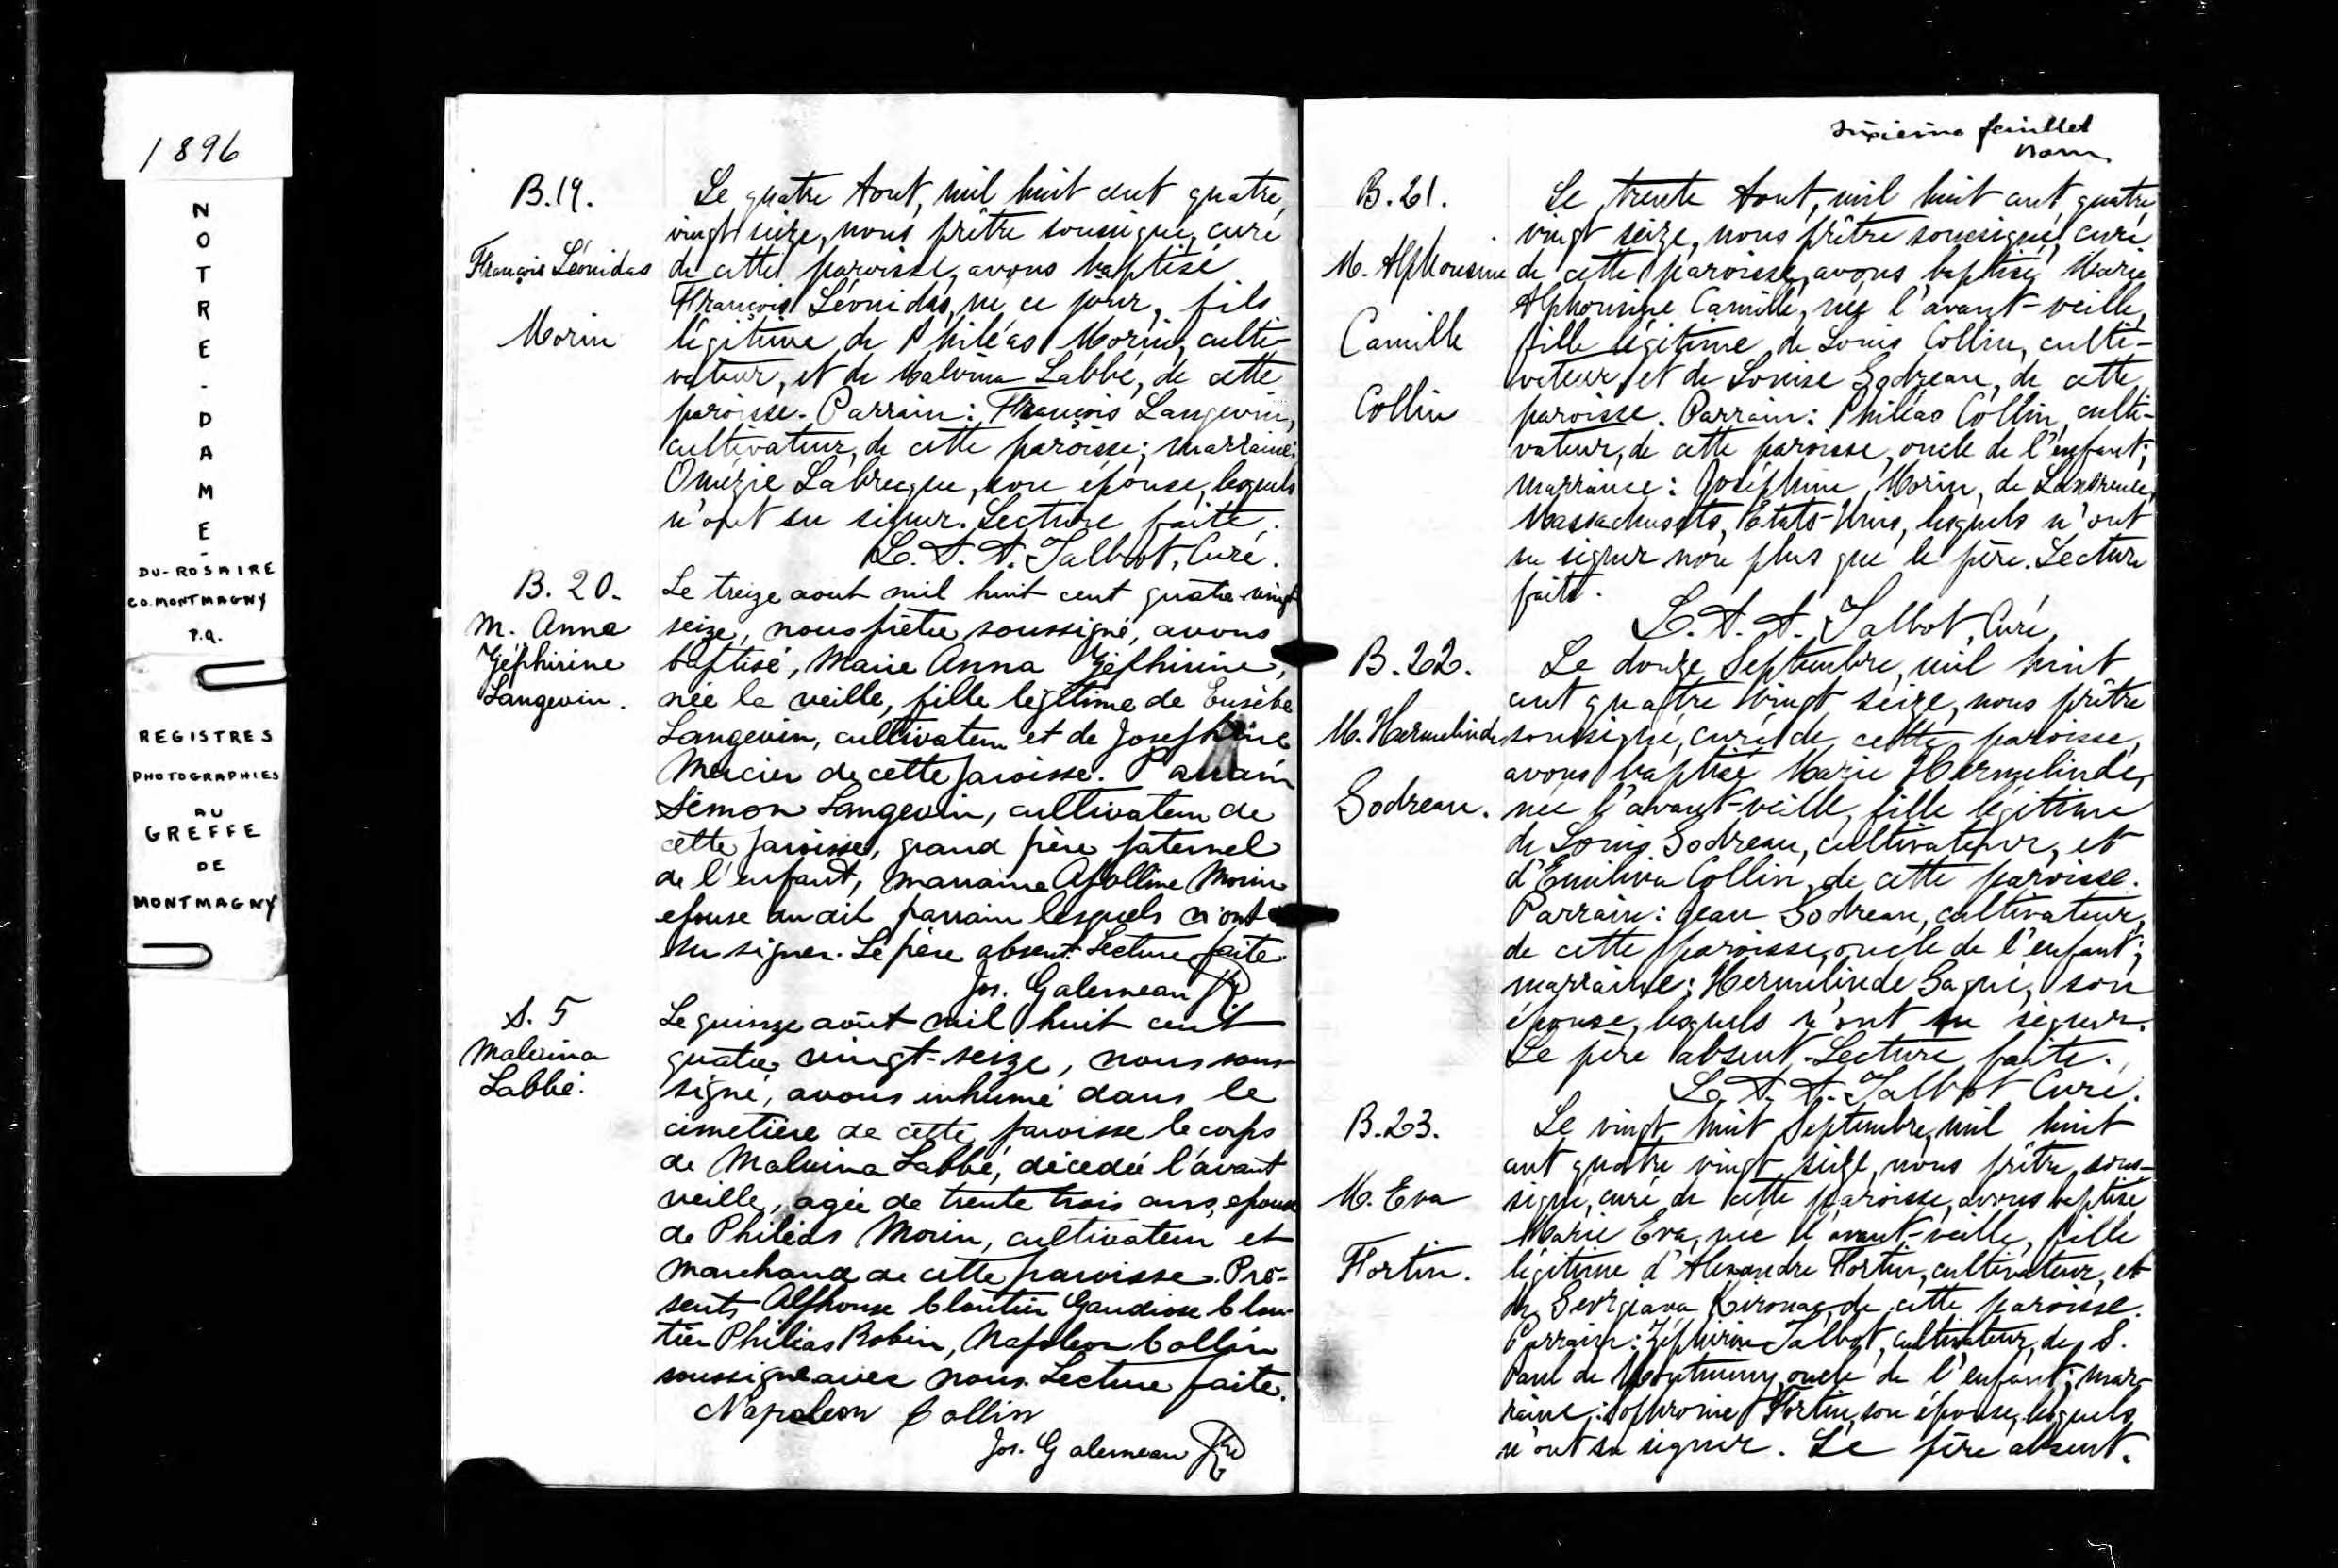 1896
NOTRE-DAME-
DU-ROSAIRE
CO. MONTMAGNY
P.Q.
REGISTRES
PHOTOGRAPHIES
AU
GREFFE
DE
MONTMAGNY
B.19.
François Léonidas
Morin
Le quatre Aout, mil huit cent quatre
vingt seize, nous prêtre soussigné, curé
de cette paroisse, avons baptisé
François Léonidas, né ce jour, fils
légitime de Philéas Morin, culti-
vateur, et de Malvina Labbé, de cette
paroisse. Parrain: François Langevin,
cultivateur, de cette paroisse; marraine:
Onézie Labrecque, son épouse, lesquels
n'ont su signer. Lecture faite.
L. A. A. Talbot, Curé.
B. 20.
M. Anna
Zéphirine
Langevin.
Le treize aout mil huit cent quatre-vingt
seize, nous prêtre soussigné, avons
baptisé, Marie Anna Zéphirine,
née la veille, fille légitime de Eusèbe
Langevin, cultivateur et de Josephine
Mercier de cette paroisse. Parrain
Simon Langevin, cultivateur de
cette paroisse, grand père paternel
de l'enfant, marraine Apolline Morin
epouse du dit parrain lesquels n'ont
su signer. Le père absent. Lecture faite.
Jos. Galerneau Ptre
S. 5
Malvina
Labbé.
Le quinze août mil huit cent
quatre vingt-seize, nous sous-
signé, avons inhumé dans le
cimetière de cette paroisse le corps
de Malvina Labbé, décedée l'avant
veille, agée de trente trois ans, epouse
de Philéas Morin, cultivateur et
marchand de cette paroisse. Pré-
sents Alphonse Cloutier Gaudiose Clou-
tier Philias Robin, Napoléon Collin
soussigné avec nous. Lecture faite.
Napoleon Collin
Jos. Galerneau Ptre
sixième feuillet
B.21.
M. Alphonsine
Camille
Collin
Le trente Aout, mil huit cent quatre
vingt seize, nous prêtre soussigné, curé
de cette paroisse, avons baptisé Marie
Alphonsine Camille, née l'avant-veille,
fille légitime de Louis Collin, culti-
vateur, et de Louise Godreau, de cette
paroisse. Parrain: Philéas Collin, culti-
vateur, de cette paroisse, oncle de l'enfant;
marraine: Joséphine Morin, de Lawrence,
Massachusets, Etats-Unis, lesquels n'ont
su signer non plus que le père. Lecture
faite.
L. A. A. Talbot, Curé.
B. 22.
M. Hermelinde
Godreau.
Le douze Septembre, mil huit
cent quatre vingt seize, nous prêtre
soussigné, curé de cette paroisse,
avons baptisé Marie Hermelinde,
née l'avant-veille, fille légitime
de Louis Godreau, cultivateur, et
d'Emilina Collin, de cette paroisse.
Parrain: Jean Godreau, cultivateur,
de cette paroisse, oncle de l'enfant;
marraine: Hermelinde Gagné, son
épouse, lesquels n'ont su signer.
Le père absent. Lecture faite.
L. A. A. Talbot Curé.
B.23.
M. Eva
Fortin.
Le vingt huit Septembre, mil huit
cent quatre vingt seize, nous prêtre sous-
signé, curé de cette paroisse, avons baptisé
Marie Eva, née l'avant-veille, fille
légitime d'Alexandre Fortin, cultivateur, et
de Georgiana Kirouac, de cette paroisse.
Parrain: Zéphirin Talbot, cultivateur, de S.
Paul de Montminy, oncle de l'enfant; mar-
raine: Sophronie Fortin, son épouse, lesquels
n'ont su signer. Le père absent.